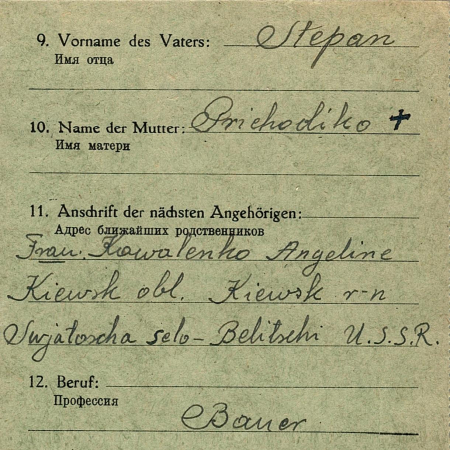 9. Vorname des Vaters: Stepan
Имя отца
10. Name der Mutter: Prichodiko +
Имя матери
11. Anschrift der nächsten Angehörigen:
Адрес ближайших родственников
Frau. Kowalenko Angeline
Kiewsk obl. Kiewsk r-n
Swjatoscha selo - Belitschi U.S.S.R.
12. Beruf:
Профессия
Bauer